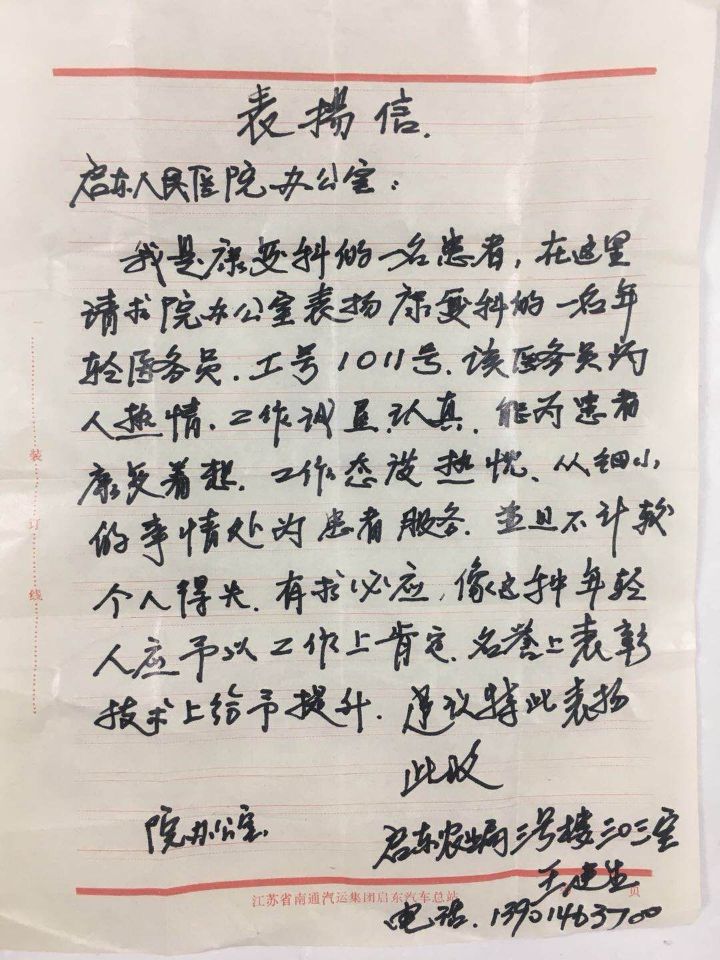 表揚信.
启东人民医院办公室：
我是康复科的一名患者，在这里
请求院办公室表扬康复科的一名年
轻医务员.工号1011号.该医务员为
人热情.工作诚恳.认真.能为患者
康复着想.工作态度热忱.从细小
的事情处为患者服务.并且不计较
个人得失.有求必应,像这种年轻
人应予以工作上肯定.名誉上表彰
技术上给予提升.建议特此表扬
此致
院办公室
启东农业局三号楼三〇三室
王建生
电话.13901463700
装订线
江苏省南通汽运集团启东汽车总站
页